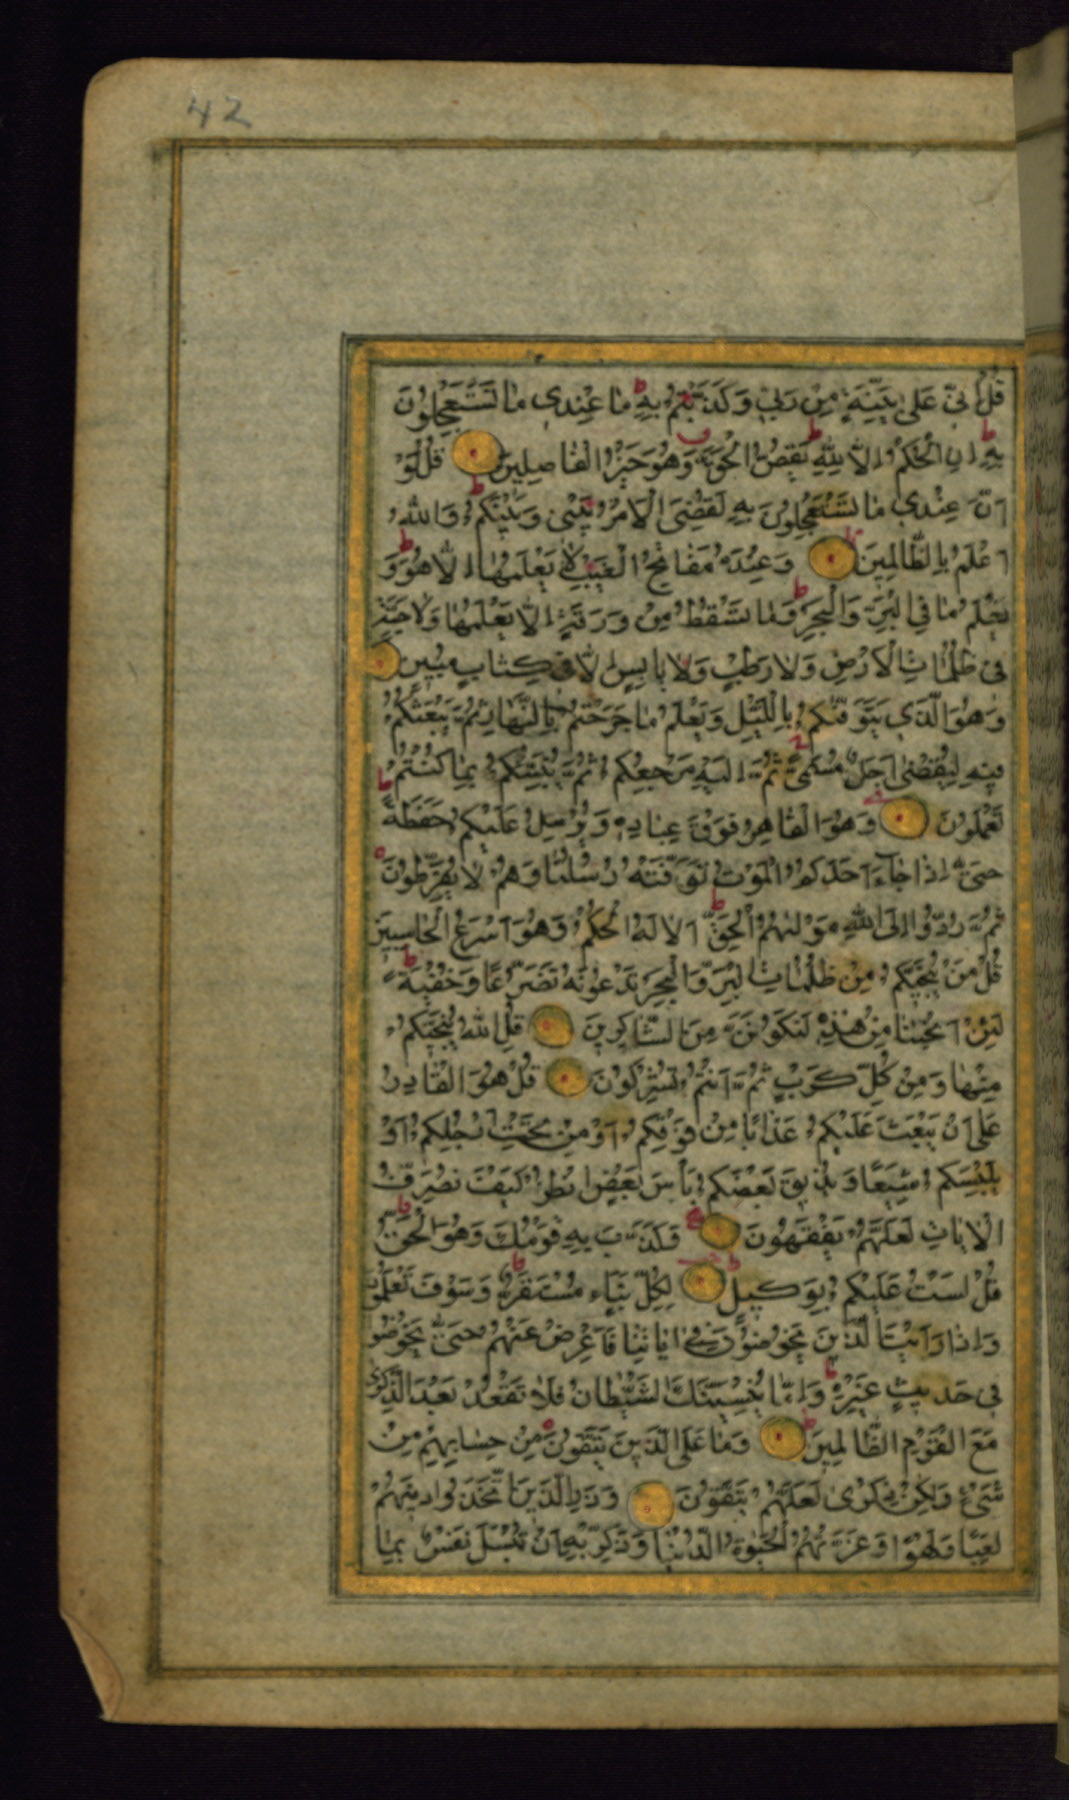 42
قُلْ اِنّى عَلٰى بَيِّنَةٍ مِنْ رَبّى وَكَذَّبْتُمْ بِهٖ مَا عِنْدى مَا تَسْتَعْجِلُونَ
بِهٖ اِنِ الْحُكْمُ اِلَّا لِلّٰهِ يَقُصُّ الْحَقَّ وَهُوَ خَيْرُ الْفَاصِلينَ قُلْ لَوْ
اَنَّ عِنْدى مَا تَسْتَعْجِلُونَ بِهٖ لَقُضِىَ الْاَمْرُ بَيْنى وَبَيْنَكُمْ وَاللّٰهُ
اَعْلَمُ بِالظَّالِمينَ وَعِنْدَهُ مَفَاتِحُ الْغَيْبِ لَا يَعْلَمُهَا اِلَّا هُوَ وَ
يَعْلَمُ مَا فِى الْبَرِّ وَالْبَحْرِ وَمَا تَسْقُطُ مِنْ وَرَقَةٍ اِلَّا يَعْلَمُهَا وَلَا حَبَّةٍ
فى ظُلُمَاتِ الْاَرْضِ وَلَا رَطْبٍ وَلَا يَابِسٍ اِلَّا فى كِتَابٍ مُبينٍ
وَهُوَ الَّذى يَتَوَفّٰيكُمْ بِاللَّيْلِ وَيَعْلَمُ مَا جَرَحْتُمْ بِالنَّهَارِ ثُمَّ يَبْعَثُكُمْ
فيهِ لِيُقْضٰى اَجَلٌ مُسَمًّى ثُمَّ اِلَيْهِ مَرْجِعُكُمْ ثُمَّ يُنَبِّئُكُمْ بِمَا كُنْتُمْ
تَعْمَلُونَ وَهُوَ الْقَاهِرُ فَوْقَ عِبَادِهٖ وَيُرْسِلُ عَلَيْكُمْ حَفَظَةً
حَتّٰى اِذَا جَاءَ اَحَدَكُمُ الْمَوْتُ تَوَفَّتْهُ رُسُلُنَا وَهُمْ لَا يُفَرِّطُونَ
ثُمَّ رُدُّوا اِلَى اللّٰهِ مَوْلٰيهُمُ الْحَقِّ اَلَا لَهُ الْحُكْمُ وَهُوَ اَسْرَعُ الْحَاسِبينَ
قُلْ مَنْ يُنَجّيكُمْ مِنْ ظُلُمَاتِ الْبَرِّ وَالْبَحْرِ تَدْعُونَهُ تَضَرُّعًا وَخُفْيَةً
لَئِنْ اَنْجَيْتَنَا مِنْ هٰذِهٖ لَنَكُونَنَّ مِنَ الشَّاكِرينَ قُلِ اللّٰهُ يُنَجّيكُمْ
مِنْهَا وَمِنْ كُلِّ كَرْبٍ ثُمَّ اَنْتُمْ تُشْرِكُونَ قُلْ هُوَ الْقَادِرُ
عَلٰى اَنْ يَبْعَثَ عَلَيْكُمْ عَذَابًا مِنْ فَوْقِكُمْ اَوْ مِنْ تَحْتِ اَرْجُلِكُمْ اَوْ
يَلْبِسَكُمْ شِيَعًا وَيُذيقَ بَعْضَكُمْ بَأْسَ بَعْضٍ اُنْظُرْ كَيْفَ نُصَرِّفُ
الْاٰيَاتِ لَعَلَّهُمْ يَفْقَهُونَ وَكَذَّبَ بِهٖ قَوْمُكَ وَهُوَ الْحَقُّ
قُلْ لَسْتُ عَلَيْكُمْ بِوَكيلٍ لِكُلِّ نَبَاٍ مُسْتَقَرٌّ وَسَوْفَ تَعْلَمُونَ
وَاِذَا رَاَيْتَ الَّذينَ يَخُوضُونَ فى اٰيَاتِنَا فَاَعْرِضْ عَنْهُمْ حَتّٰى يَخُوضُوا
فى حَديثٍ غَيْرِهٖ وَاِمَّا يُنْسِيَنَّكَ الشَّيْطَانُ فَلَا تَقْعُدْ بَعْدَ الذِّكْرٰى
مَعَ الْقَوْمِ الظَّالِمينَ وَمَا عَلَى الَّذينَ يَتَّقُونَ مِنْ حِسَابِهِمْ مِنْ
شَىْءٍ وَلٰكِنْ ذِكْرٰى لَعَلَّهُمْ يَتَّقُونَ وَذَرِ الَّذينَ اتَّخَذُوا دينَهُمْ
لَعِبًا وَلَهْوًا وَغَرَّتْهُمُ الْحَيٰوةُ الدُّنْيَا وَذَكِّرْ بِهٖ اَنْ تُبْسَلَ نَفْسٌ بِمَا